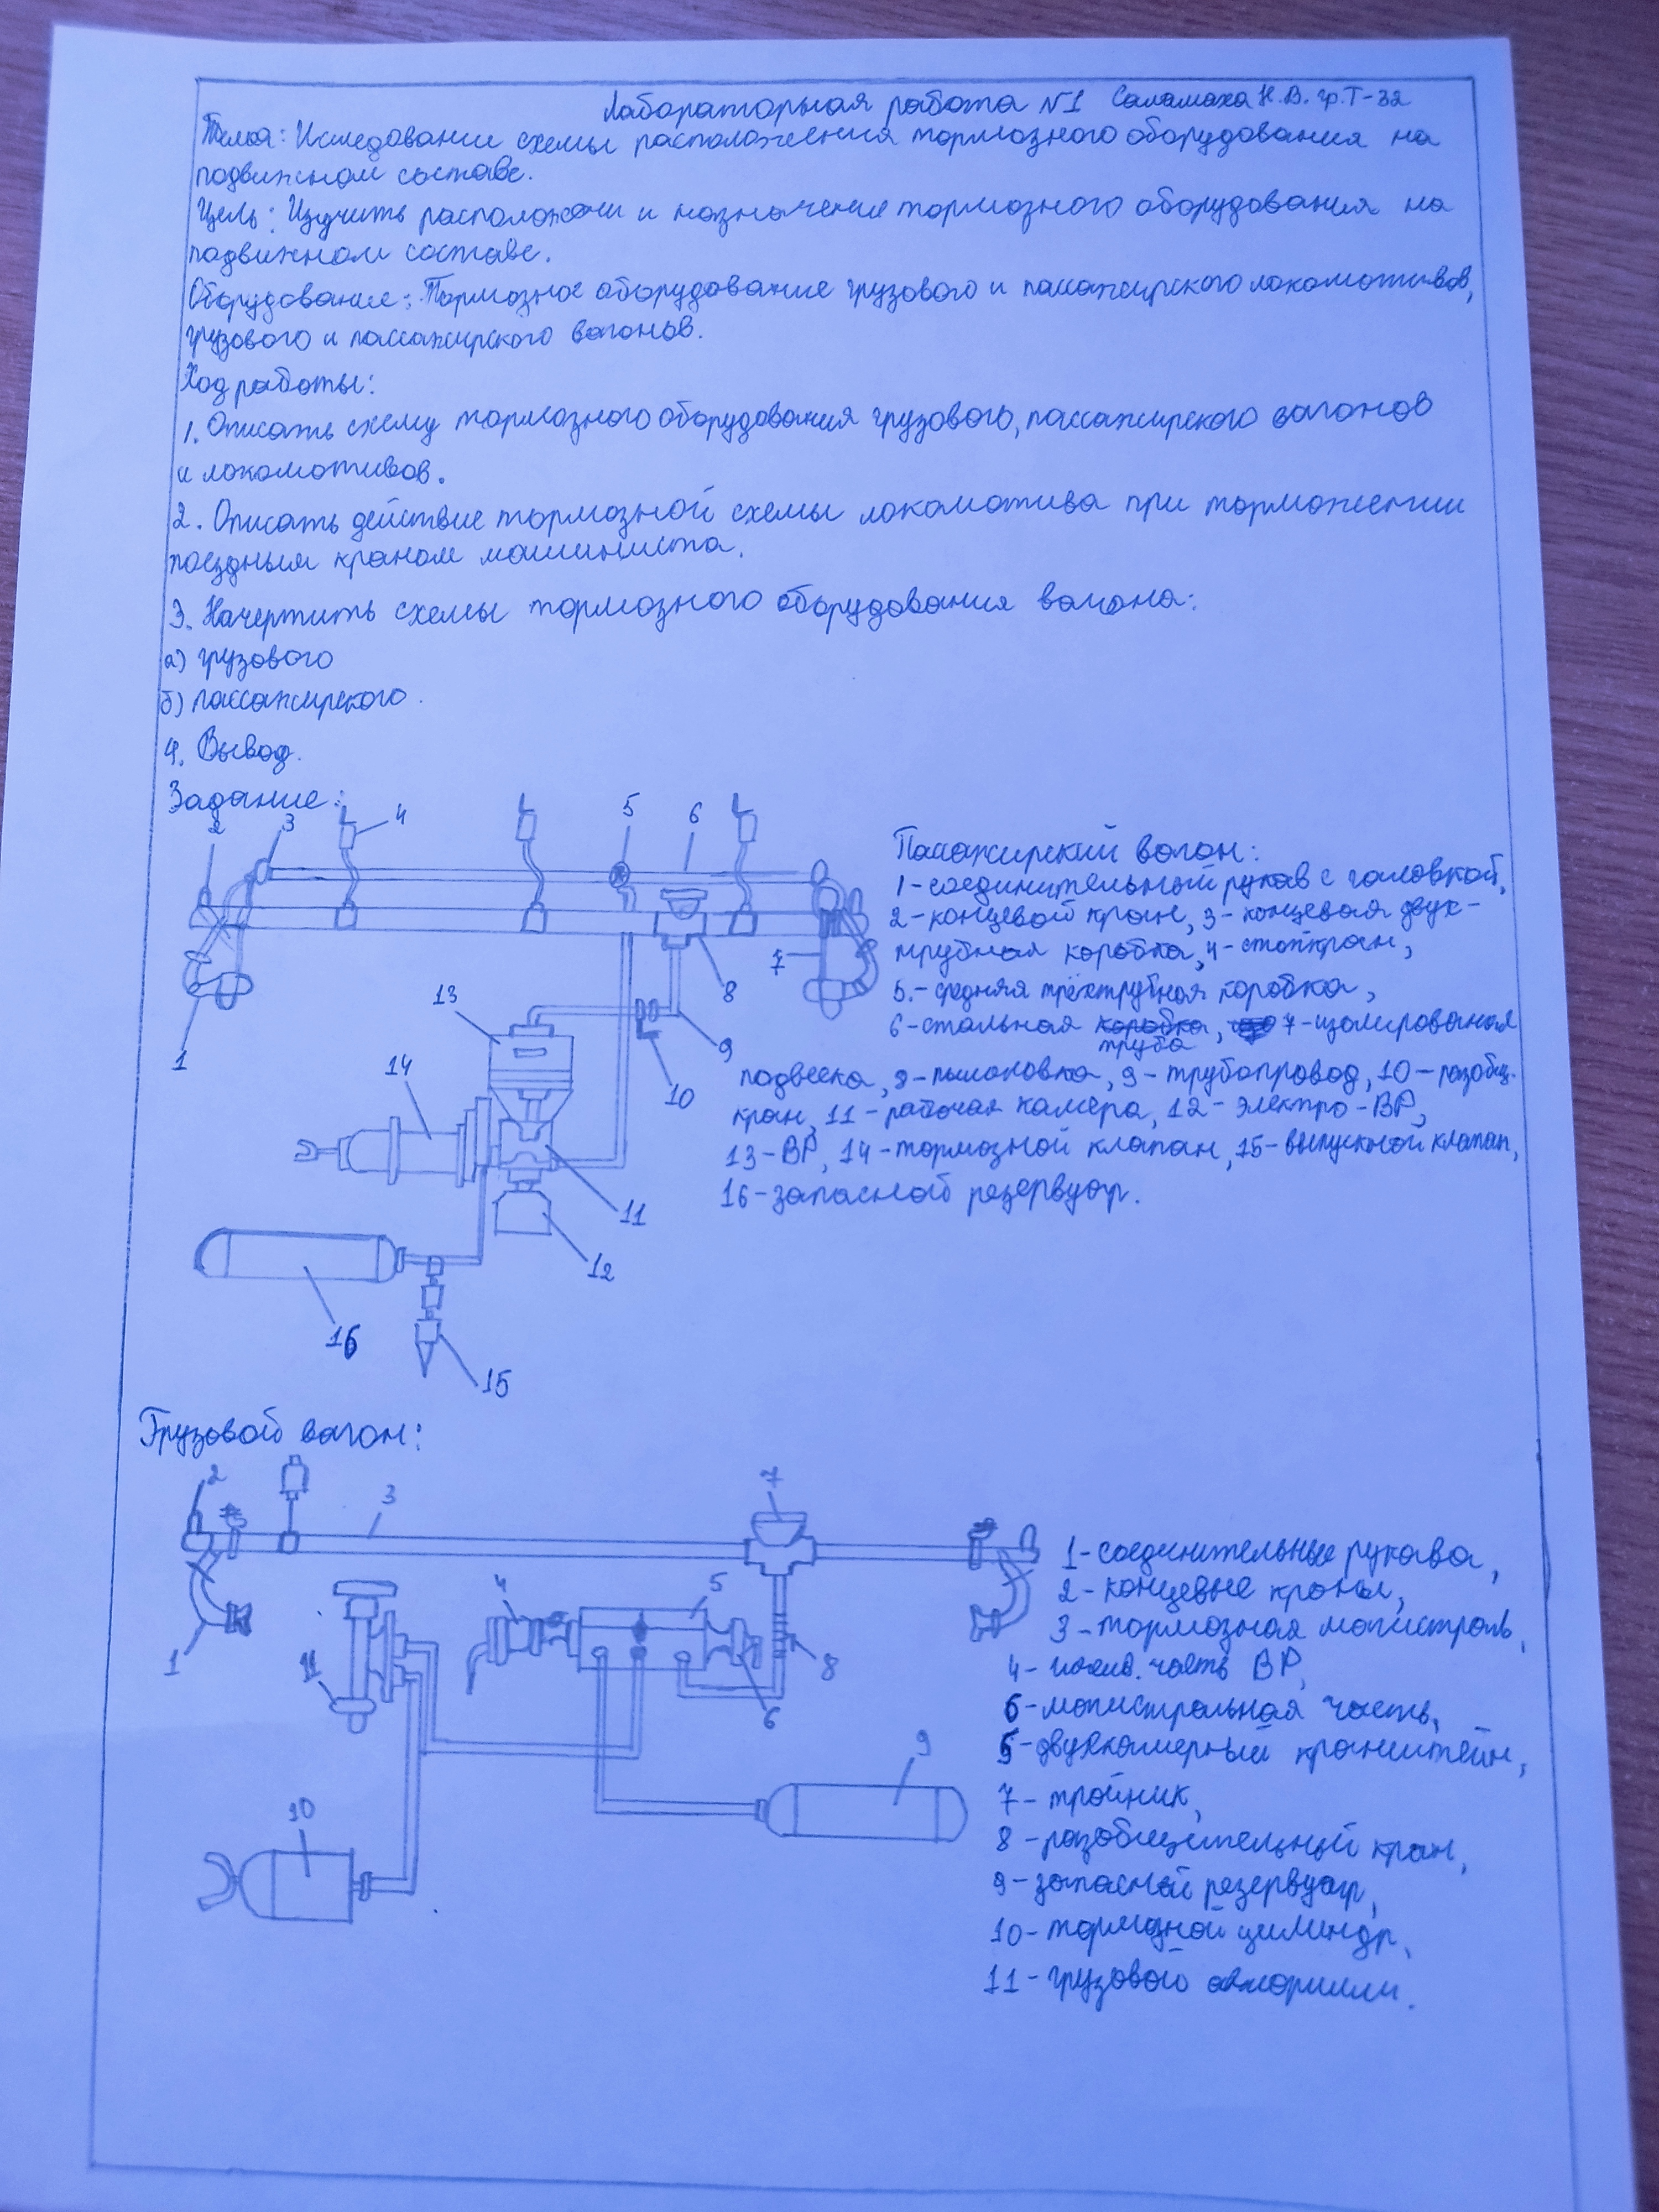 Лабораторная работа №1 Саламаха Н.В. гр. Т-32
Тема: Иследование схемы расположения тормозного оборудования на
подвижном составе.
Цель: Изучить расположени и назначение тормозного оборудования на
подвижном составе.
Оборудование: Тормозное оборудование грузового и пассажирского локомотивов,
грузового и пассажирского вагонов.
Ход работы:
1. Описать схему тормозного оборудования грузового, пассажирского вагонов
и локомотивов.
2. Описать действие тормозной схемы локомотива при торможении
поездным краном машиниста.
3. Начертить схемы тормозного оборудования вагона:
а) грузового
б) пассажирского.
4. Вывод.
Задание:
2 3 4 5 6
7 8
13 9
14 10
1
11
12
16
15
Пассажирский вагон:
1-соединительный рукав с головкой,
2-концевой кран, 3-концевая двух-
трубная коробка, 4-стопкран,
5.-средняя трёхтрубная коробка,
6-стальная коробка, 7-изолированая
труба
подвеска, 8-пылоловка, 9-трубопровод, 10-разобщ.
кран, 11-рабочая камера, 12-электро-ВР,
13-ВР, 14-тормозной клапан, 15-выпускной клапан,
16-запасной резервуар.
Грузовой вагон:
2 3 7
4 5
1 11 6 8
9
10
1-соединительные рукава,
2-концевые краны,
3-тормозная магистраль,
4- часть ВР,
6-магистральная часть,
5-двухкамерный кранштейн,
7-тройник,
8-разобщительный кран,
9-запасной резервуар,
10-тормозной цилиндр,
11-грузовой